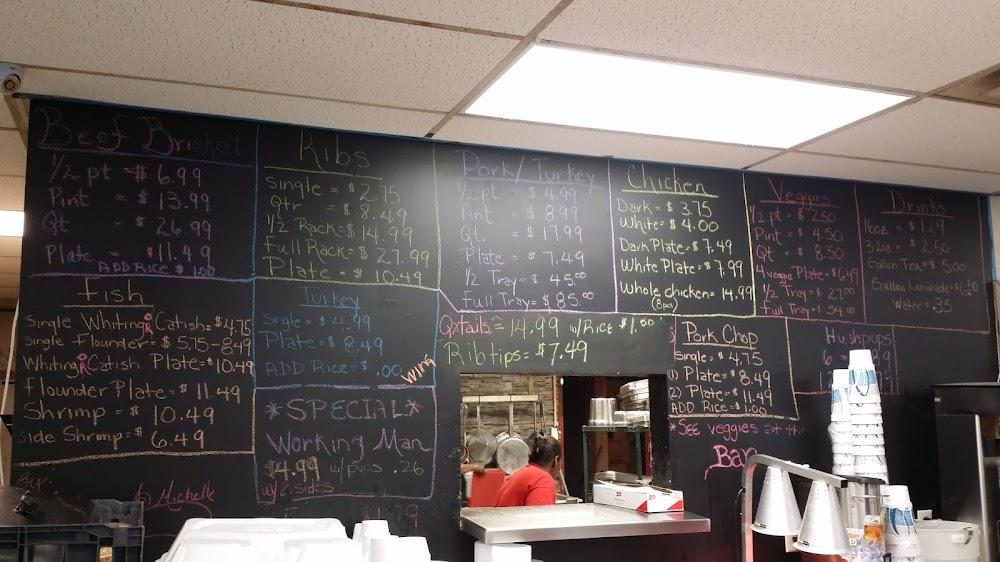 Beef Brisket
1/2 pt = $ 6.99
Pint = $ 13.99
Qt = $ 26.99
Plate = $11.49
ADD RICE $ 1.00
Ribs
Single = $ 2.75
Qtr = $ 8.49
1/2 Rack = $ 14.99
Full Rack = $ 27.99
Plate = $ 10.49
Pork/Turkey
1/2 pt = $ 4.99
Pint = $ 8.99
Qt. = $ 17.99
Plate = $ 7.49
1/2 Tray = $ 45.00
Full Tray = $ 85.00
Chicken
Dark = $ 3.75
White = $ 4.00
Dark Plate = $ 7.49
White Plate = $ 7.99
Whole chicken = 14.99
(8pcs)
Veggies
1/2 pt = $ 2.50
Pint = $ 4.50
Qt = $ 8.50
4 veggie Plate = $6.49
1/2 Tray = $ 27.00
Full Tray = $ 54.00
Drinks
16oz = $ 1.29
32oz = $ 2.50
Gallon Tea = $ 5.00
Gallon Lemonade =
Water = .35
Fish
Single Whiting OR Catfish = $4.75
Single Flounder = $ 5.75-8.49
Whiting OR Catfish Plate = $10.49
Flounder Plate = $ 11.49
Shrimp = $ 10.49
Side Shrimp = $ 6.49
Turkey
Single = $ 4.99
Plate = $ 8.49
ADD Rice = $ 1.00
Wing
*SPECIAL*
Working Man
$4.99 w/pups .26
w/2 sides
Oxtails = 14.99 w/Rice $1.00
Rib tips = $7.49
Pork Chop
Single = $ 4.75
1) Plate = $ 8.49
2) Plate = $ 11.49
ADD RICE = $ 1.00
Hushpups
*SEE veggies at the
Bar
Michelle